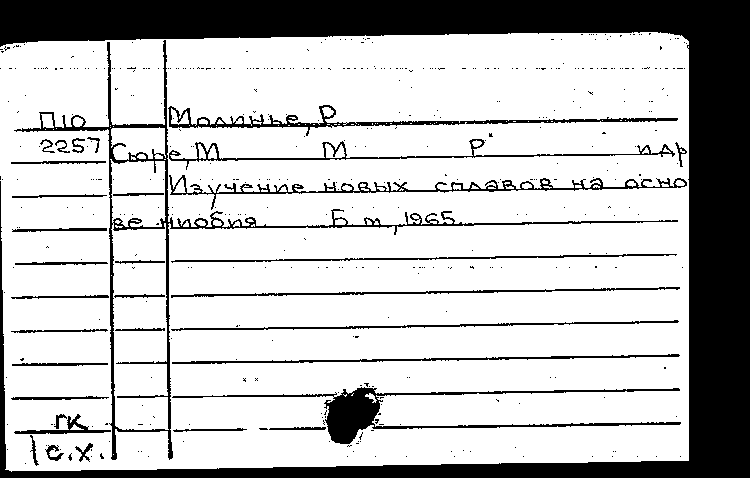 П10 Молинье, Р
2257 Сюре, М М Р и др
Изучение новых сплавов на осно
ве ниобия Б м, 1965
ГК
1 с.х.